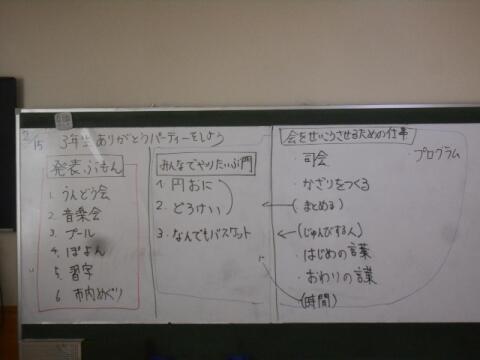 2/15
3年生ありがとうパーティーをしよう
発表ぶもん
1. うんどう会
2. 音楽会
3. プール
4. ぽよん
5. 習字
6. 市内めぐり
みんなでやりたいぶ門
1. 円おに
2. どろけい
3. なんでもバスケット
会をせいこうさせるための仕事
・司会
・プログラム
・かざりをつくる
(まとめる)
(じゅんびする人)
・はじめの言葉
・おわりの言葉
(時間)